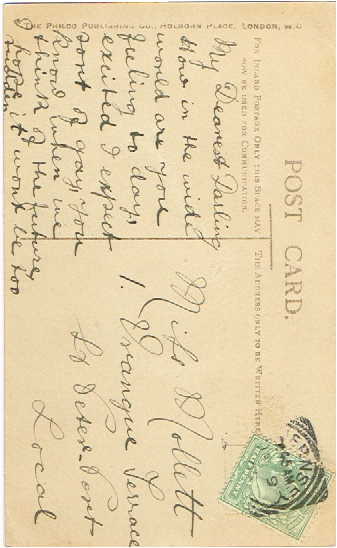 THE PHILCO PUBLISHING CO., HOLBORN PLACE, LONDON, W.C.
POST CARD.
FOR INLAND POSTAGE ONLY THIS SPACE MAY
NOW BE USED FOR COMMUNICATION.
THE ADDRESS ONLY TO BE
WRITTEN HERE.
My Dearest Darling
How in the wide
world are you
feeling to day,
excited I expect
sort of gay, you
know when we
think of the future,
I hope it wont be too
sudden.
Miss Mollett
1. Vrangue Terrace
St Peter-Port
Local